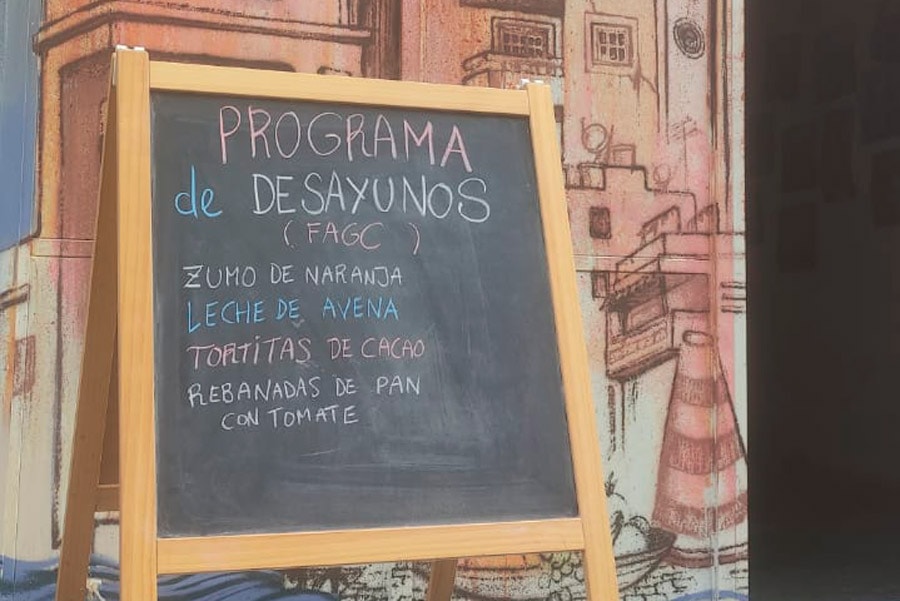 PROGRAMA
de DESAYUNOS
( FAGC )
ZUMO DE NARANJA
LECHE DE AVENA
TORTITAS DE CACAO
REBANADAS DE PAN
CON TOMATE